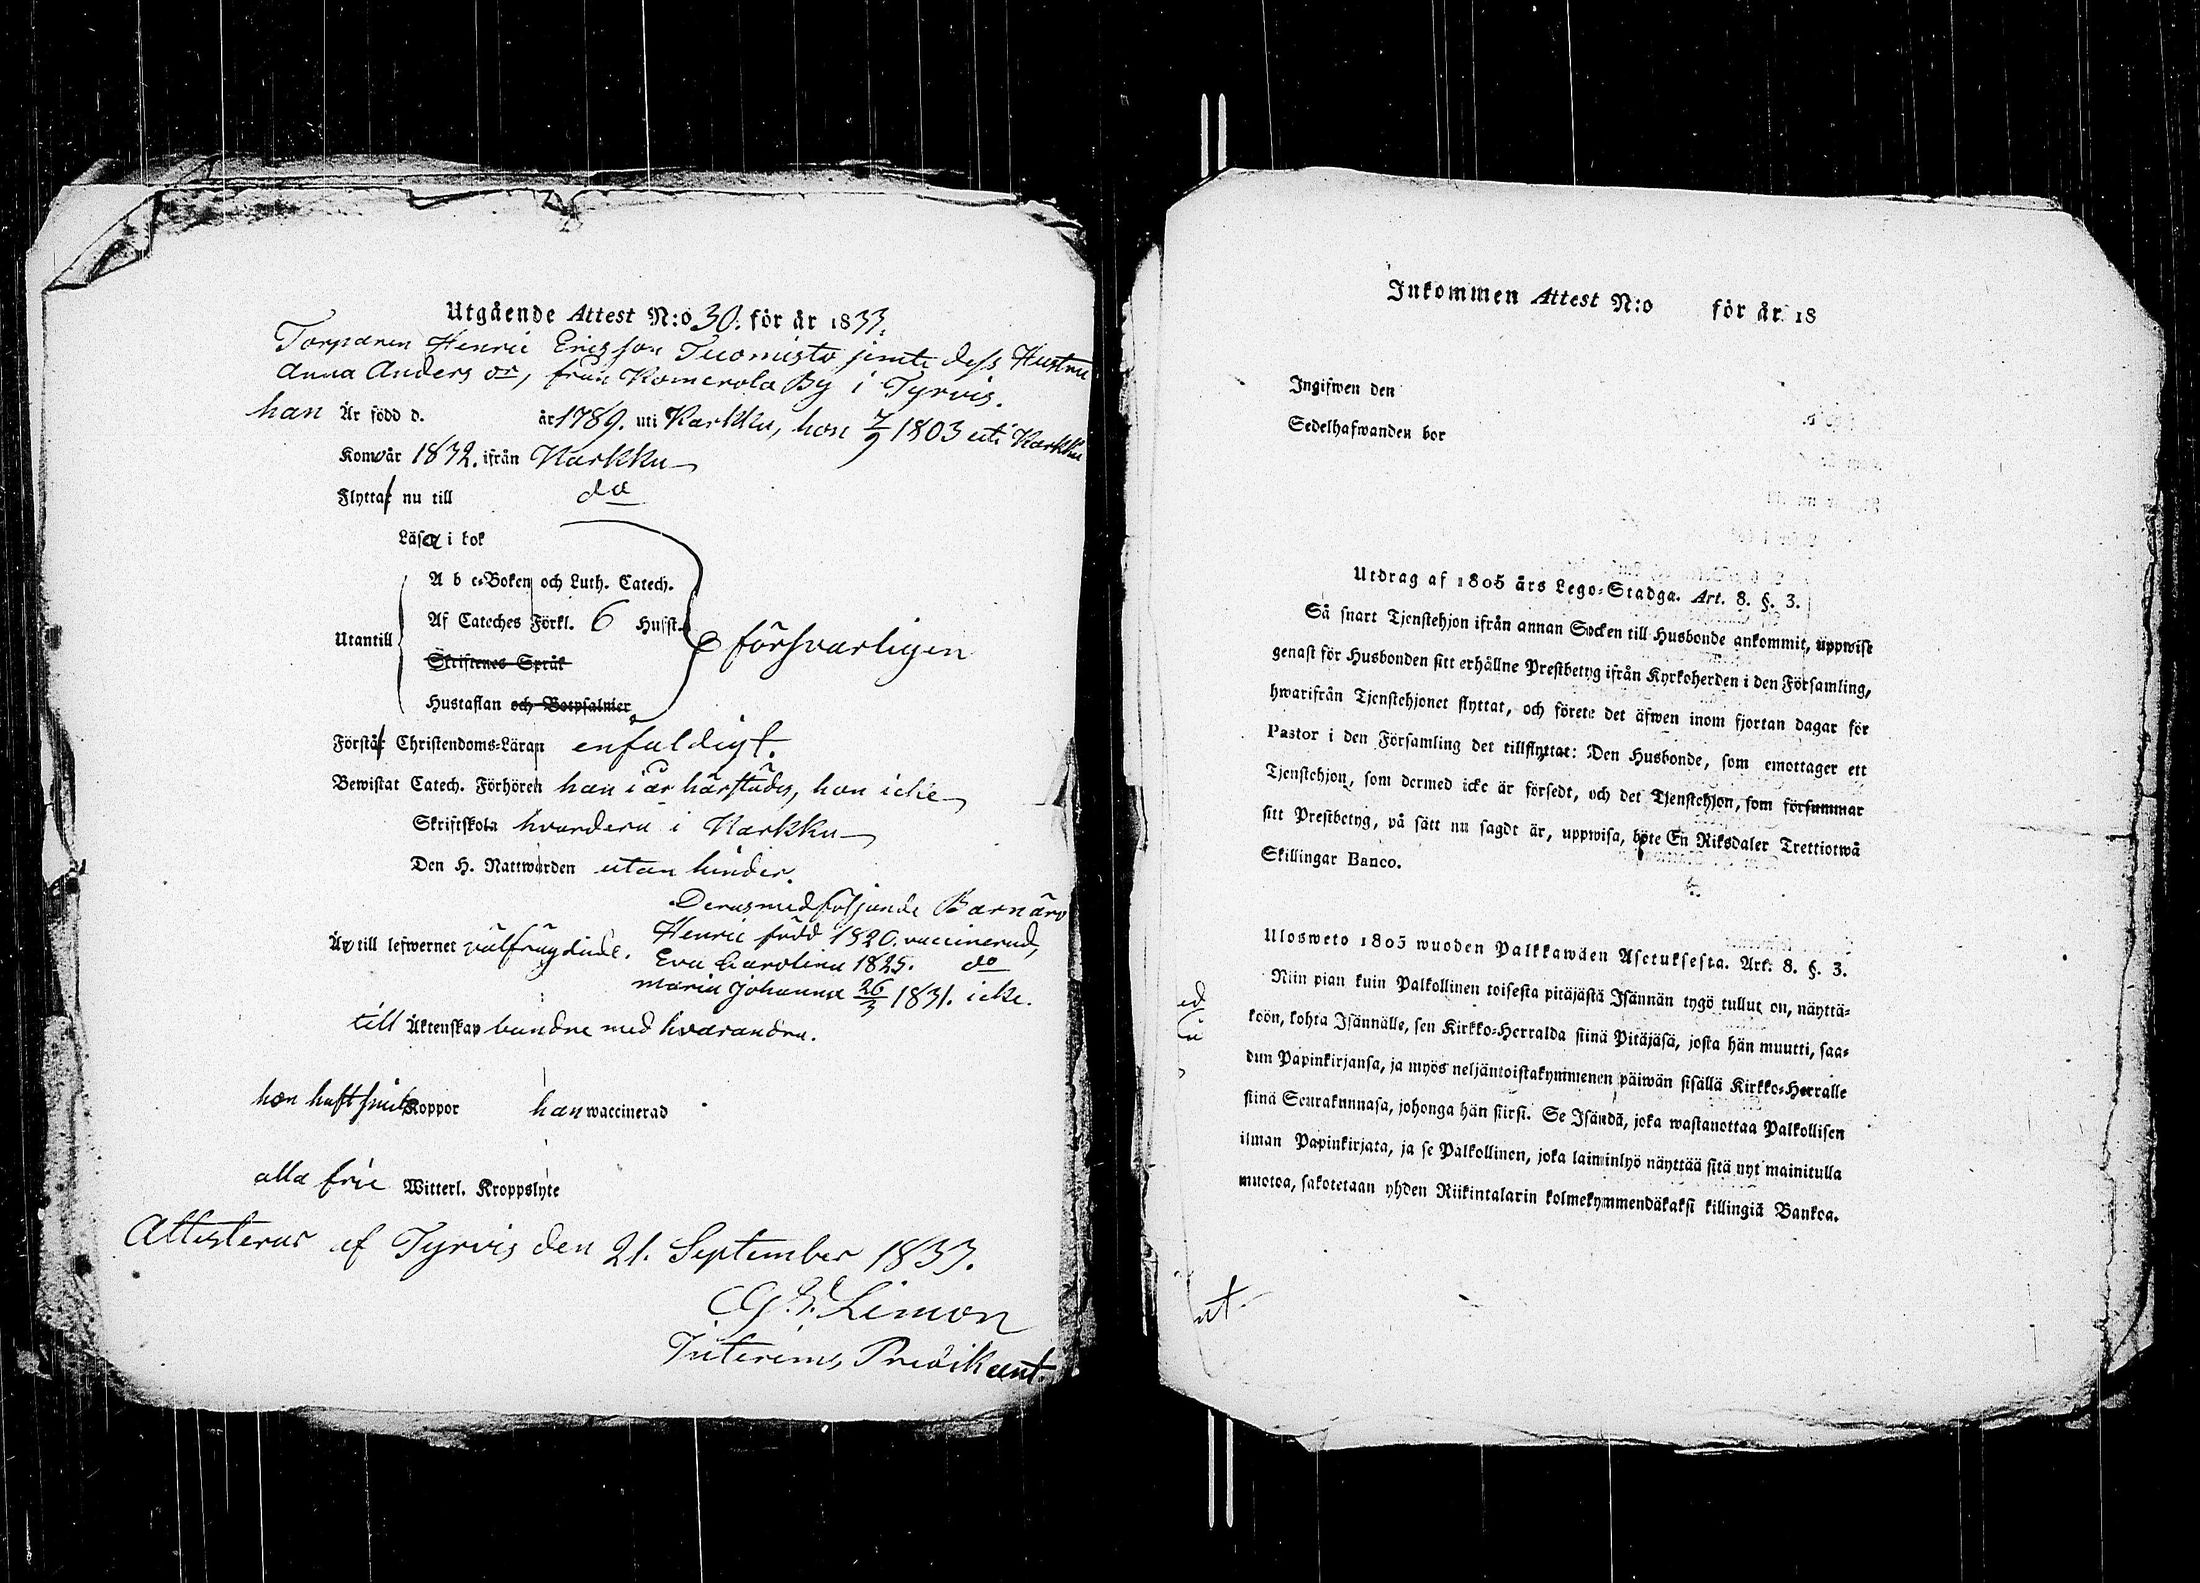 Utgående Attest N:o 30. för år 1833.
Torparen Henric Ericsson Tuomisto jemte dess Hustru
Anna Anders dr, från Komerola By i Tyrvis.
han Är född d. år 1789. uti Karkku, hon 7/9 1803 uti Karkku
Kom år 1832. ifrån Karkku
Flytta nu till do
Läsa i bok
A b c-Boken och Luth. Catech.
Af Cateches Förkl. 6 Hufst.
Utantill
försvarligen
Skriftenes Språk
Hustaflan och Botpsalmer
Förstår Christendoms-Läran enfaldigt.
Bewistat Catech. Förhören han i år härstädes, hon icke
Skriftskola hvardera i Karkku
Den H. Nattwarden utan hinder.
Deras medföljande Barn äro
Henric född 1820. vaccinerad,
Äro till lefwernet välfrägdade. Eva Carolina 1825. do
Maria Johanna 26/3 1831. icke.
till Äktenskap bundne med hvarandra.
hon haft Koppor han waccinerad
alla frie Witterl. Kroppslyte
Attesterar af Tyrvis den 21. September 1833.
Limon
Interims Predikant.
Inkommen Attest N:o för år 18
Ingifwen den
Sedelhafwanden bor
Utdrag af 1805 års Lego-Stadga. Art. 8. §. 3.
Så snart Tjenstehjon ifrån annan Socken till Husbonde ankommit, uppwise
genast för Husbonden sitt erhållne Prestbetyg ifrån Kyrkoherden i den Församling,
hwarifrån Tjenstehjonet flyttat, och förete det äfwen inom fjortan dagar för
Pastor i den Församling det tillflyttat: Den Husbonde, som emottager ett
Tjenstehjon, som dermed icke är försedt, och det Tjenstehjon, som försummar
sitt Prestbetyg, på sätt nu sagdt är, uppwisa, böte En Riksdaler Trettiotwå
Skillingar Banco.
Ulosweto 1805 wuoden Palkkawäen Asetuksesta. Art. 8. §. 3.
Niin pian kuin Palkollinen toisesta pitäjästä Isännän tygö tullut on, näyttä-
köön, kohta Isännälle, sen Kirkko-Herralda siinä Pitäjäsä, josta hän muutti, saa-
dun Papinkirjansa, ja myös neljäntoistakymmenen päiwän sisällä Kirkko-Herralle
siinä Seurakunnasa, johonga hän siirsi. Se Isändä, joka wastanottaa Palkollisen
ilman Papinkirjata, ja se Palkollinen, joka laiminlyö näyttää sitä nyt mainitulla
muotoa, sakotetaan yhden Riikintalarin kolmekymmendäkaksi killingiä Bankoa.